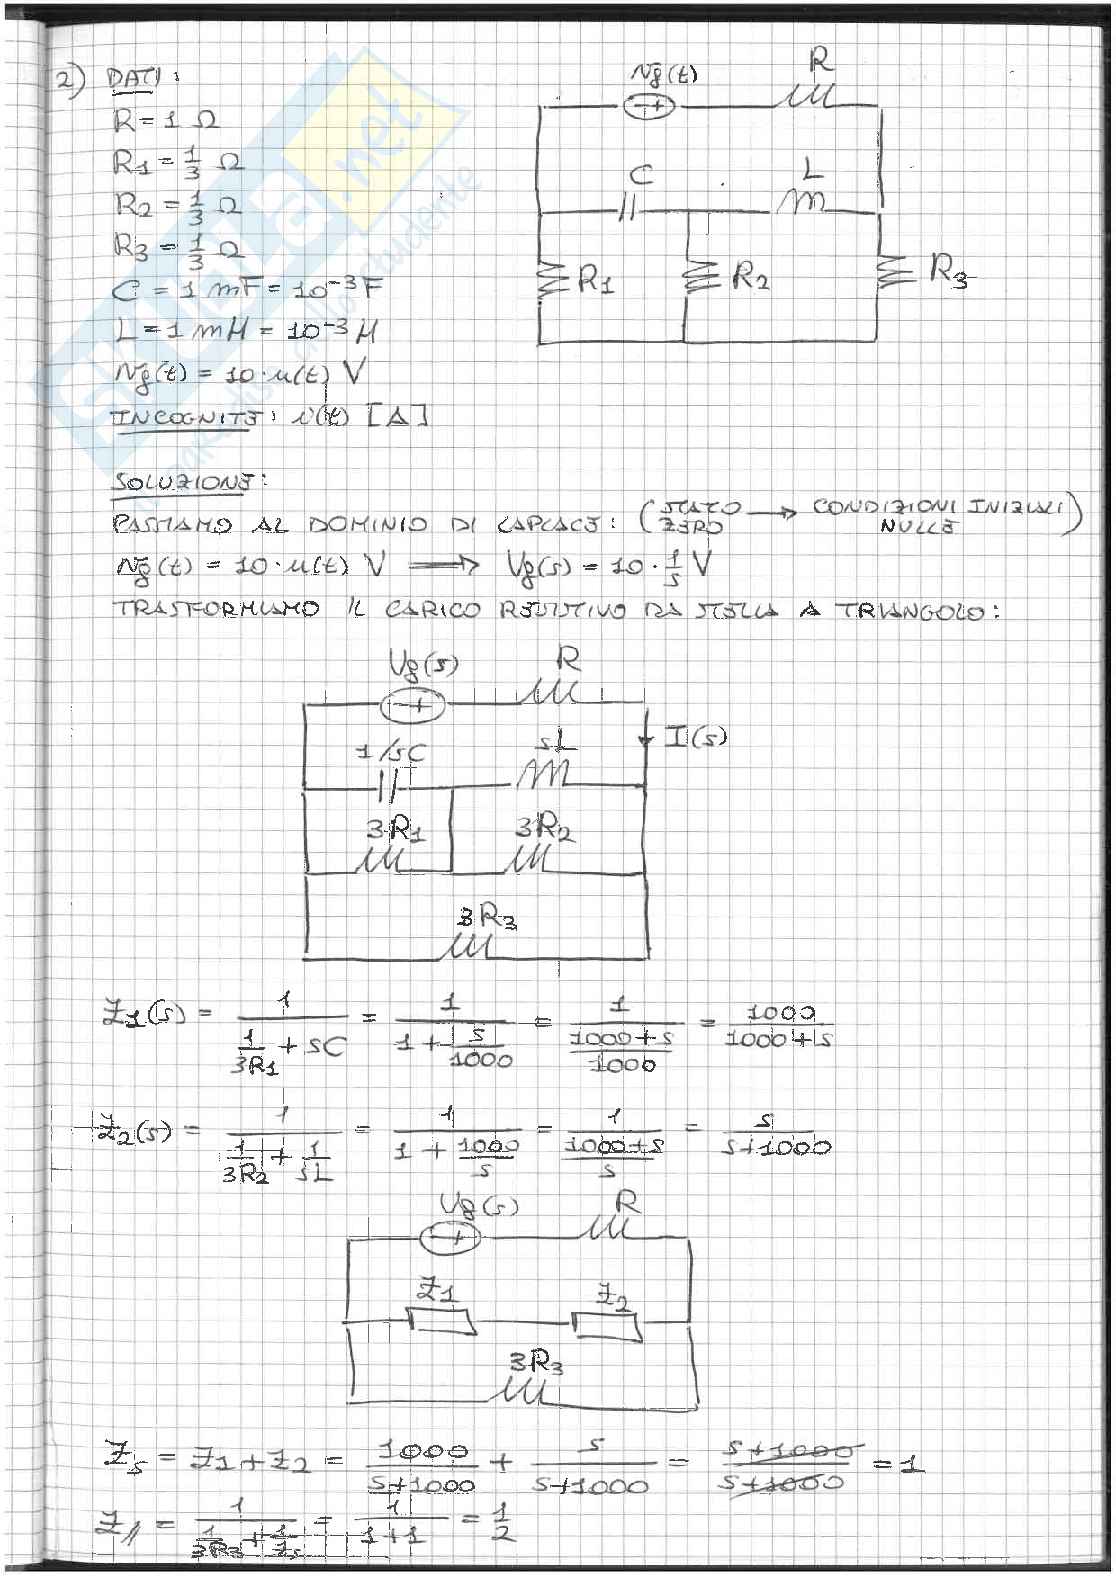 2) DATI:
R = 1 Ω
R1 = 1/3 Ω
R2 = 1/3 Ω
R3 = 1/3 Ω
C = 1 mF = 10^-3 F
L = 1 mH = 10^-3 H
Vg(t) = 10·u(t) V
INCOGNITE: i(t) [A]
Vg(t)
R
- +
C
L
R1
R2
R3
SOLUZIONE:
PASSIAMO AL DOMINIO DI LAPLACE: (STATO ZERO → CONDIZIONI INIZIALI NULLE)
Vg(t) = 10·u(t) V ⟹ Vg(s) = 10·1/s V
TRASFORMIAMO IL CARICO RESISTIVO DA STELLA A TRIANGOLO:
Vg(s)
R
- +
I(s)
1/sC
sL
3R1
3R2
3R3
Z1(s) = 1/(1/3R1 + sC) = 1/(1 + s/1000) = 1/((1000+s)/1000) = 1000/(1000+s)
Z2(s) = 1/(1/3R2 + 1/sL) = 1/(1 + 1000/s) = 1/((1000+s)/s) = s/(s+1000)
Vg(s)
R
- +
Z1
Z2
3R3
Zs = Z1+Z2 = 1000/(s+1000) + s/(s+1000) = (s+1000)/(s+1000) = 1
Z// = 1/(1/3R3 + 1/Zs) = 1/(1+1) = 1/2
SKUOLA.net